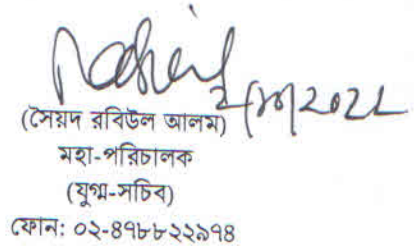 (সৈয়দ রবিউল আলম)
মহা-পরিচালক
(যুগ্ম-সচিব)
ফোন: ০২-৪৭৮৮২২৯৭৪